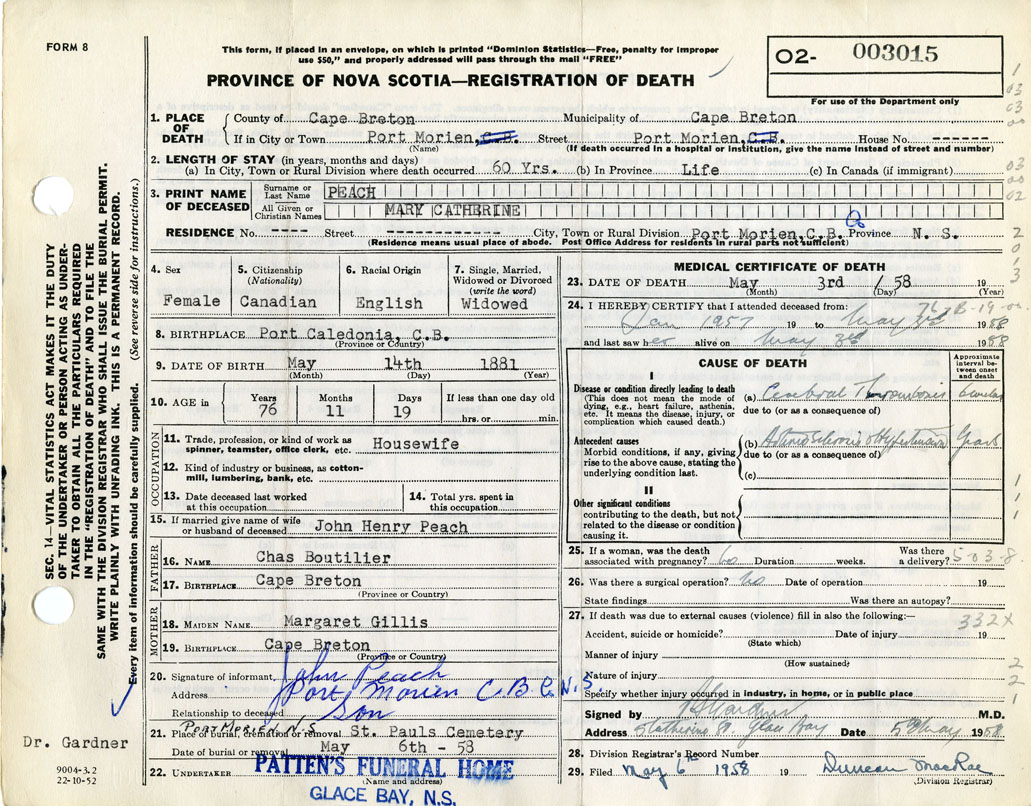 FORM 8
This form, if placed in an envelope, on which is printed "Dominion Statistics—Free, penalty for improper
use $50," and properly addressed will pass through the mail "FREE"
PROVINCE OF NOVA SCOTIA—REGISTRATION OF DEATH
O2- 003015
For use of the Department only
1. PLACE OF DEATH
County of Cape Breton Municipality of Cape Breton
If in City or Town Port Morien, C.B. Street Port Morien, C.B. House No. ------
(Name) (If death occurred in a hospital or institution, give the name instead of street and number)
2. LENGTH OF STAY (in years, months and days)
(a) In City, Town or Rural Division where death occurred 60 Yrs. (b) In Province Life (c) In Canada (if immigrant)
3. PRINT NAME OF DECEASED
Surname or Last Name PEACH
All Given or Christian Names MARY CATHERINE
RESIDENCE No. ---- Street -------------- City, Town or Rural Division Port Morien, C.B. Province N. S.
(Residence means usual place of abode. Post Office Address for residents in rural parts not sufficient)
4. Sex
Female
5. Citizenship
(Nationality)
Canadian
6. Racial Origin
English
7. Single, Married,
Widowed or Divorced
(write the word)
Widowed
8. BIRTHPLACE Port Caledonia, C.B.
(Province or Country)
9. DATE OF BIRTH May 14th 1881
(Month) (Day) (Year)
10. AGE in
Years Months Days If less than one day old
76 11 19 hrs. or min.
OCCUPATION
11. Trade, profession, or kind of work as
spinner, teamster, office clerk, etc. Housewife
12. Kind of industry or business, as cotton-
mill, lumbering, bank, etc.
13. Date deceased last worked
at this occupation
14. Total yrs. spent in
this occupation
15. If married give name of wife
or husband of deceased John Henry Peach
FATHER
16. NAME Chas Boutilier
17. BIRTHPLACE Cape Breton
(Province or Country)
MOTHER
18. MAIDEN NAME Margaret Gillis
19. BIRTHPLACE Cape Breton
(Province or Country)
20. Signature of informant, John Peach
Address Port Morien C.B. N.S
Relationship to deceased Son
PORT MORIEN N.S.
21. Place of burial, cremation or removal St. Pauls Cemetery
Date of burial or removal May 6th - 58
22. UNDERTAKER PATTEN'S FUNERAL HOME
(Name and address)
GLACE BAY, N.S.
MEDICAL CERTIFICATE OF DEATH
23. DATE OF DEATH May 3rd / 58 19
(Month) (Day) (Year)
24. I HEREBY CERTIFY that I attended deceased from:
Jan 1957 19 to May 3rd 1958
and last saw her alive on May 3rd 1958
CAUSE OF DEATH
Approximate
interval be-
tween onset
and death
I
Disease or condition directly leading to death
(This does not mean the mode of
dying, e.g., heart failure, asthenia,
etc. It means the disease, injury, or
complication which caused death.)
(a) Cerebral Thrombosis
due to (or as a consequence of)
Antecedent causes
Morbid conditions, if any, giving
rise to the above cause, stating the
underlying condition last.
(b) Arteriosclerosis & Hypertension Years
due to (or as a consequence of)
(c)
II
Other significant conditions
contributing to the death, but not
related to the disease or condition
causing it.
25. If a woman, was the death
associated with pregnancy? No Duration weeks. Was there
a delivery?
5-03-8
26. Was there a surgical operation? No Date of operation 19
State findings Was there an autopsy?
27. If death was due to external causes (violence) fill in also the following:—
332X
Accident, suicide or homicide? Date of injury 19
(State which)
Manner of injury
(How sustained)
Nature of injury
Specify whether injury occurred in industry, in home, or in public place
Signed by Gardner M.D.
Address S Catherine St. Glace Bay Date 5 May 1958
28. Division Registrar's Record Number
29. Filed May 6th 1958 19 Duncan MacRae
(Division Registrar)
SEC. 14—VITAL STATISTICS ACT MAKES IT THE DUTY
OF THE UNDERTAKER OR PERSON ACTING AS UNDER-
TAKER TO OBTAIN ALL THE PARTICULARS REQUIRED
IN THE "REGISTRATION OF DEATH" AND TO FILE THE
SAME WITH THE DIVISION REGISTRAR WHO SHALL ISSUE THE BURIAL PERMIT.
WRITE PLAINLY WITH UNFADING INK. THIS IS A PERMANENT RECORD.
Every item of information should be carefully supplied. (See reverse side for instructions.)
Dr. Gardner
9004-3.2
22-10-52